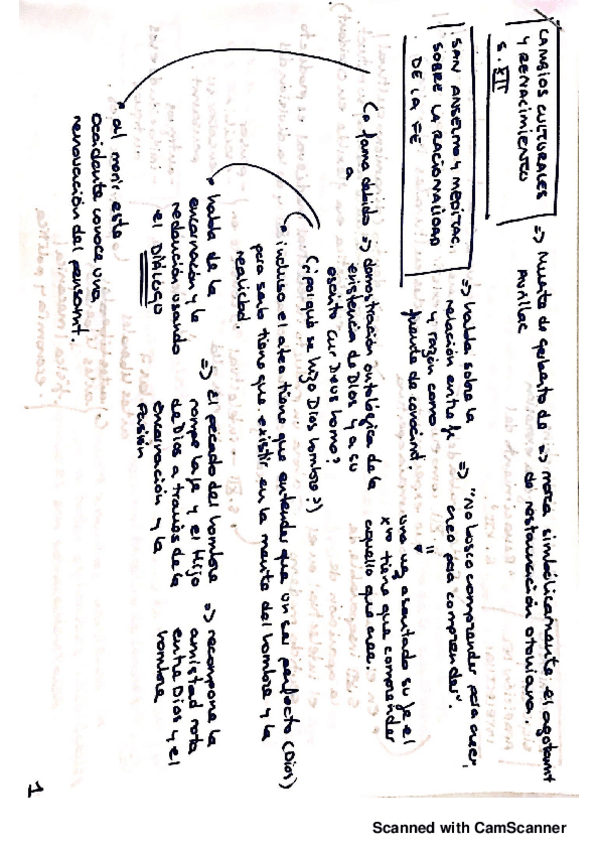 CAMBIOS CULTURALES
Y RENACIMIENTO
S. XII
=> Muerte de Gerberto de
Aurillac
=> marca simbólicamente el agotamt
de restauración otoniana.
SAN ANSELMO Y MEDITAC.
SOBRE LA RACIONALIDAD
DE LA FE
=> habla sobre la
relación entre fe
y razón como
fuente de conocimt.
=> "No busco comprender para creer,
creo para comprender".
una vez asentado su fe el
xº tiene que comprender
aquello que cree.
fama debido => demostración ontológica de la
a
existencia de Dios y a su
escrito Cur Deus homo?
(¿por qué se hizo Dios hombre?)
incluso el ateo tiene que entender que un ser perfecto (Dios)
para serlo tiene que existir en la mente del hombre y la
realidad.
habla de la
encarnación y la
redención usando
el DIÁLOGO
=> El pecado del hombre
rompe la fe y el Hijo
de Dios a través de la
encarnación y la
Pasión
=> recompone la
amistad rota
entre Dios y el
hombre
al morir este
Occidente conoce una
renovación del pensamt.
1
Scanned with CamScanner